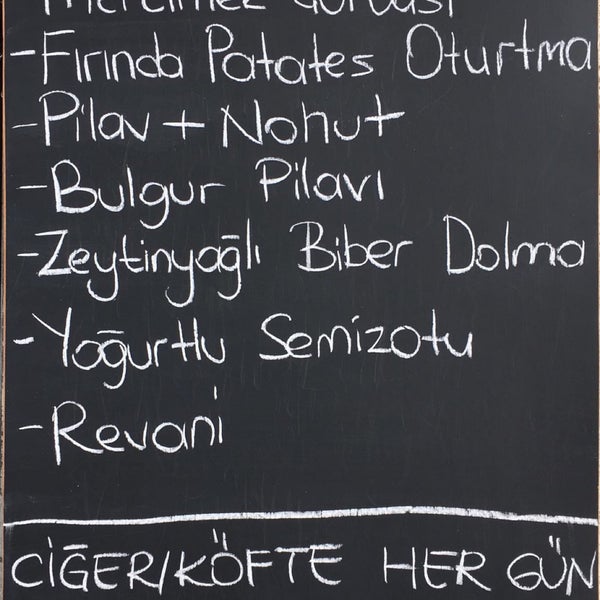 Mercimek Çorbası
-Fırında Patates Oturtma
-Pilav + Nohut
-Bulgur Pilavı
-Zeytinyağlı Biber Dolma
-Yoğurtlu Semizotu
-Revani
CİĞER/KÖFTE HER GÜN